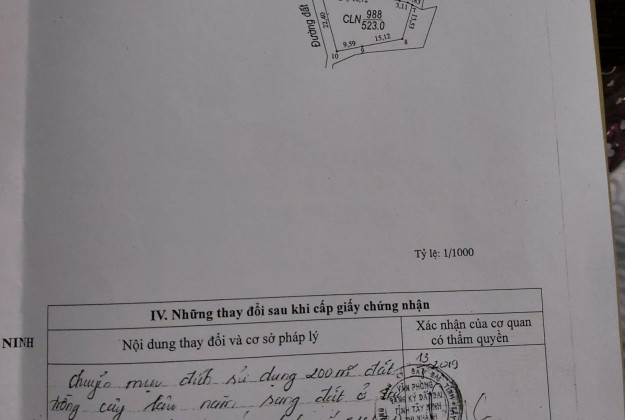 3,11
15,53
Đường đất
22,40
CLN 988
523.0
9,59
15,12
10
9
8
Tỷ lệ: 1/1000
IV. Những thay đổi sau khi cấp giấy chứng nhận
NINH
Nội dung thay đổi và cơ sở pháp lý
Xác nhận của cơ quan
có thẩm quyền
Chuyển mục đích sử dụng 200 m² đất
13
2019
trồng cây lâu năm sang đất ở
VĂN PHÒNG
ĐĂNG KÝ ĐẤT ĐAI
TỈNH TÂY NINH